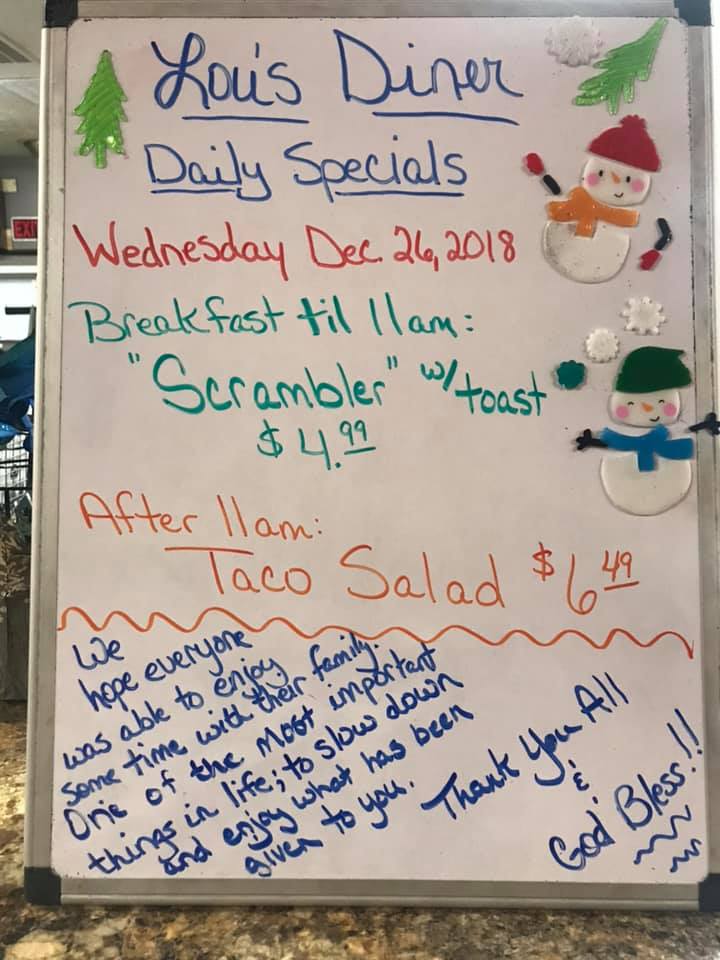 Lou's Diner
Daily Specials
Wednesday Dec. 26, 2018
Breakfast til 11am:
"Scrambler" w/ toast
$4.99
After 11am:
Taco Salad $6.49
We
hope everyone
was able to enjoy
some time with their family.
One of the most important
things in life; to slow down
and enjoy what has been
given to you.
Thank You All
&
God Bless!!
EXI